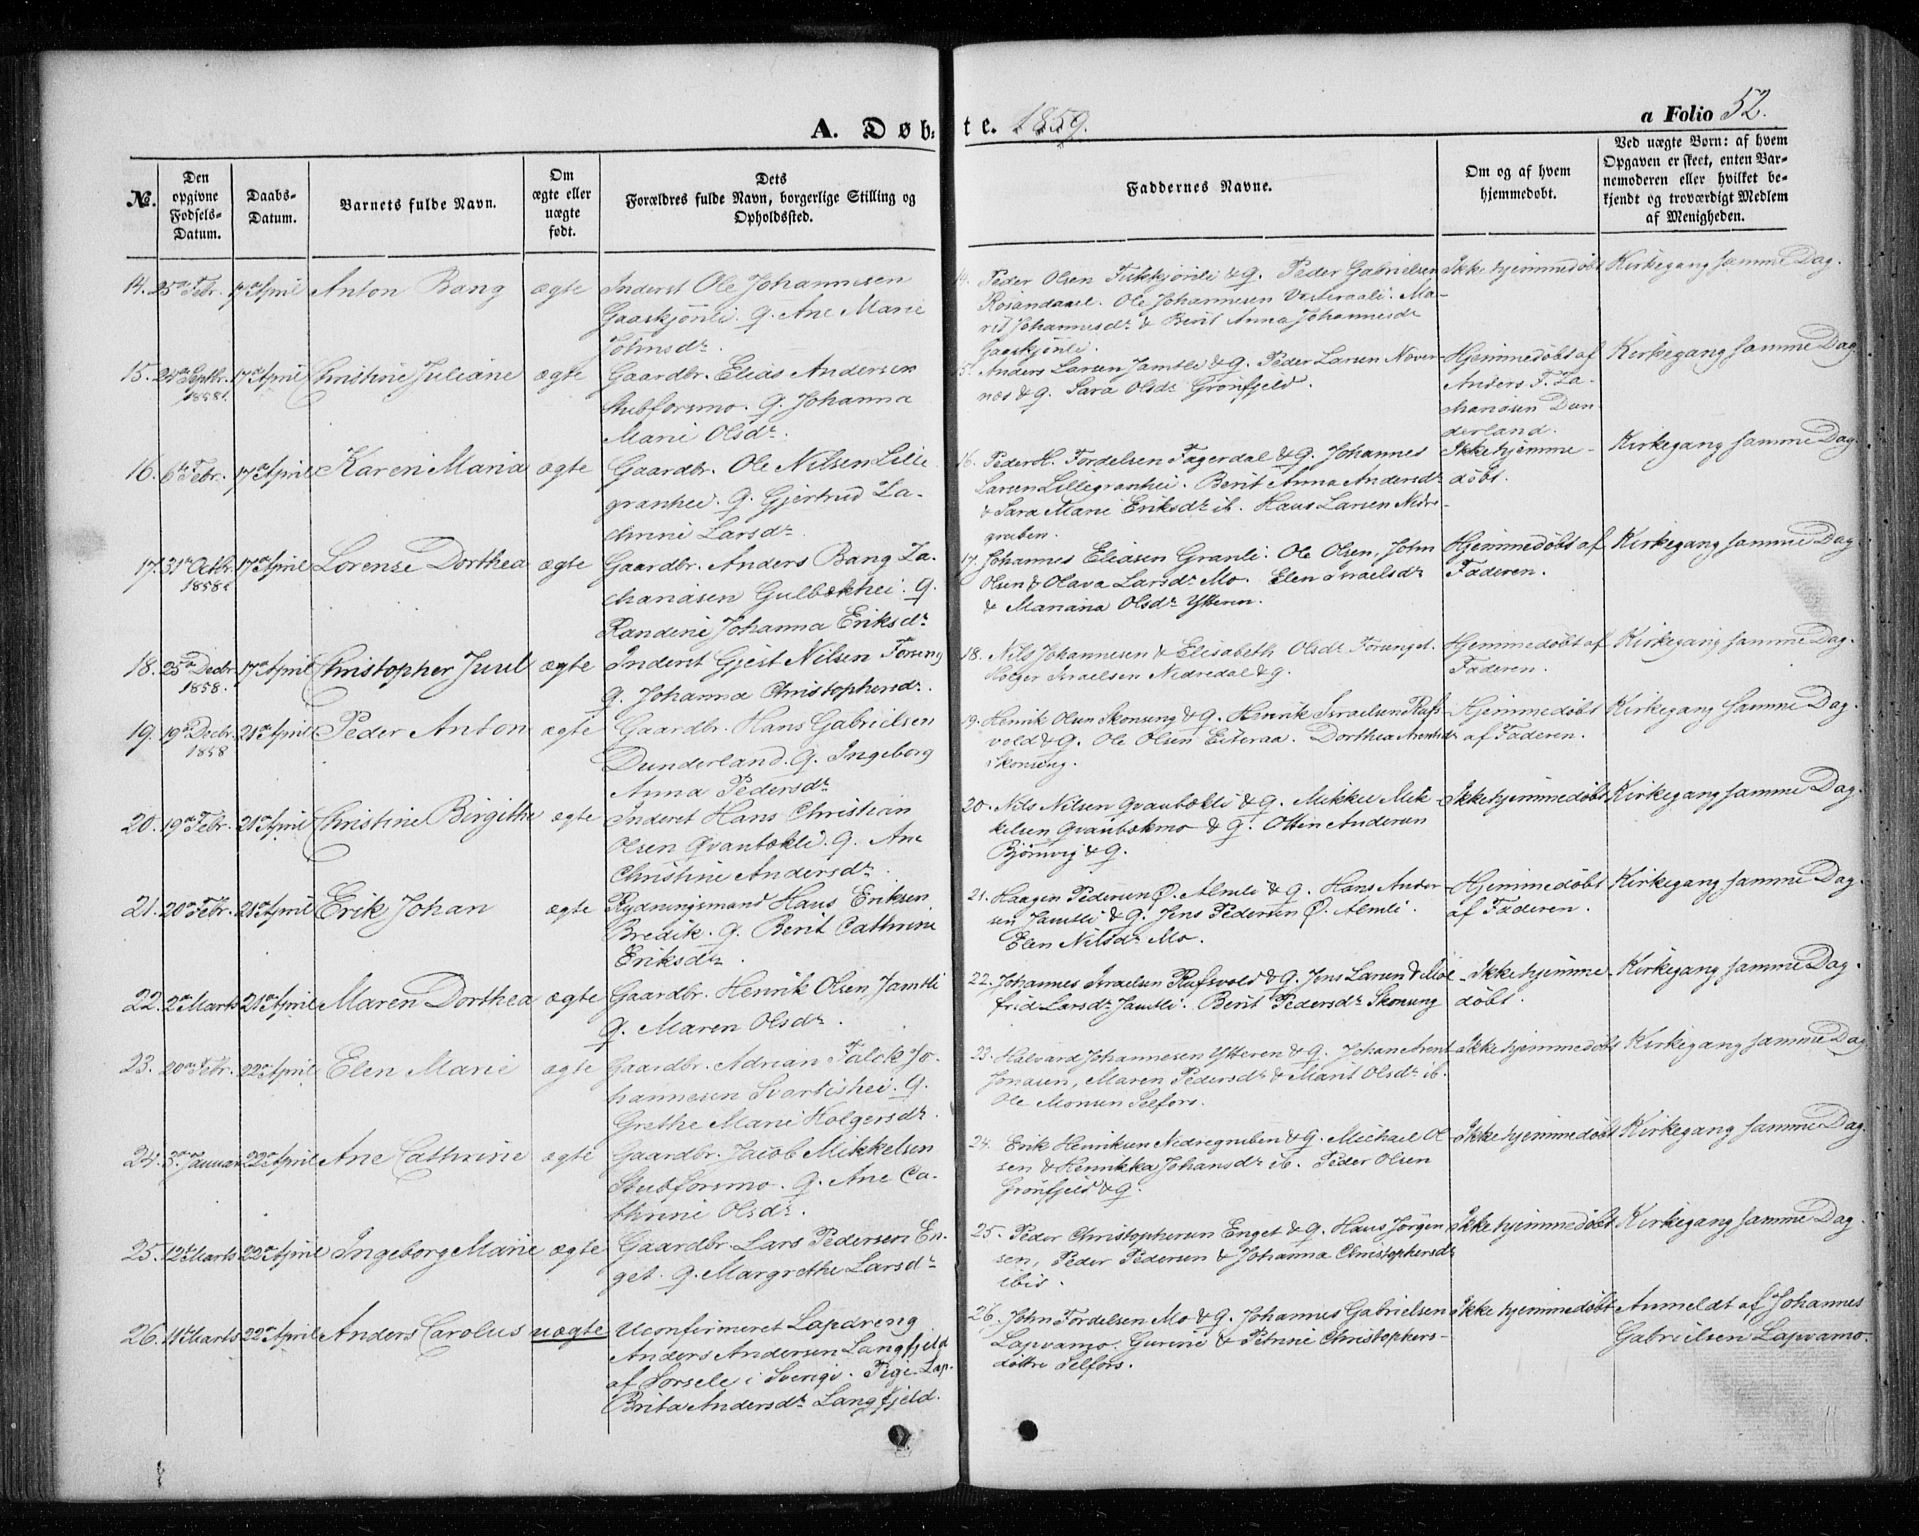 A. Døb-
te. 1859.
a Folio 52.
No.
Den opgivne Fødsels-Datum.
Daabs-Datum.
Barnets fulde Navn.
Om ægte eller uægte født.
Dets Forældres fulde Navn, borgerlige Stilling og Opholdssted.
Faddernes Navne.
Om og af hvem hjemmedøbt.
Ved uægte Børn: af hvem Opgaven er skeet, enten Barnemoderen eller hvilket bekjendt og troværdigt Medlem af Menigheden.
14. 25de Febr. 17de April Anton Bang ægte Inderst Ole Johannesen
Gaaskjønli. g. Ane Marie
Johnsdr.
14. Peder Olsen & g. Peder Gabrielsen
Rosandaael. Ole Johannesen Vesteraali. Ma-
rit Johannesdr & Berit Anna Johannesdr
Gaaskjønli.
Ikke hjemmedøbt
Kirkegang samme Dag.
15. 24de Septbr. 1858. 17de April Christine Juliane ægte Gaardbr. Elias Andersen
Stubforsmo. g. Johanna
Marie Olsdr.
15. Anders Larsen Jamtli & g. Peder Larsen Nover-
næs & g. Sara Olsdr Grønfjeld.
Hjemmedøbt af
Anders F. Za-
chariasen Dun-
derland.
Kirkegang samme Dag.
16. 6te Febr. 17de April Karen Maria ægte Gaardbr. Ole Nilsen Lille
granhei. g. Gjertrud Za-
chrine Larsdr.
16. Peder H. Tordelsen Fagerdal & g. Johannes
Larsen Lillegranhei. Berit Anna Andersdr
& Sara Marie Eriksdr ib. Hans Larsen Nedre-
gruben.
Ikke hjemme-
døbt.
Kirkegang samme Dag.
17. 31te Octbr. 1858. 17de April Lorense Dorthea ægte Gaardbr. Anders Bang Za-
chariasen Gulbækhei. g.
Randine Johanna Eriksdr
17. Johannes Eliasen Granli. Ole Olsen, John
Olsen & Olava Larsdr Mo. Elen Israelsdr
& Mariana Olsdr Ytteren.
Hjemmedøbt af
Faderen.
Kirkegang samme Dag.
18. 25de Decbr. 1858. 17de April Christopher Juul ægte Inderst Gjest Nilsen Forsung
g. Johanna Christophersdr.
18. Nils Johannesen & Elisabeth Olsdr Forunget.
Holger Israelsen Nedredal & g.
Hjemmedøbt af
Faderen.
Kirkegang samme Dag.
19. 19de Decbr. 1858 21de April Peder Anton ægte Gaardbr. Hans Gabrielsen
Dunderland. g. Ingeborg
Anna Pedersdr
19. Henrik Olsen Skonseng & g. Henrik Israelsen Rufs-
vold & g. Ole Olsen Eiteraa. Dorthea Arentsdr
Skonseng.
Hjemmedøbt
af Faderen.
Kirkegang samme Dag.
20. 19de Febr. 21de April Christine Birgithe ægte Inderst Hans Christian
Olsen Qvanbækli. g. Ane
Christine Andersdr.
20. Nils Nilsen Qvanbækli & g. Mikkel Mik-
kelsen Qvanbækmo & g. Ottin Andersen
Bjørnvig & g.
Ikke hjemmedøbt
Kirkegang samme Dag.
21. 20de Febr. 21de April Erik Johan ægte Rydningsmand Hans Eriksen
Bredik. g. Berit Cathrine
Eriksdr.
21. Haagen Pedersen Ø. Almli & g. Hans Ander-
sen Jamtli & g. Jens Pedersen Ø. Almli.
Elen Nilsdr Mo.
Hjemmedøbt
af Faderen.
Kirkegang samme Dag.
22. 2de Marts 21de April Maren Dorthea ægte Gaardbr. Henrik Olsen Jamtli
g. Maren Olsdr.
22. Johannes Israelsen Rufsvold & g. Jens Larsen & Mol-
frid Larsdr Jamtli. Berit Pedersdr Skonseng
Ikke hjemme
døbt.
Kirkegang samme Dag.
23. 20de Febr. 22de April Elen Marie ægte Gaardbr. Adrian Falck Jo-
hannesen Svartishei. g.
Grethe Marie Holgersdr.
23. Halvard Johannesen Ytteren & g. Johan Arent
Jonasen, Maren Pedersdr & Marit Olsdr ib.
Ole Monsen Selfors.
Ikke hjemmedøbt
Kirkegang samme Dag.
24. 3de Januar 22de April Ane Cathrine ægte Gaardbr. Jacob Mikkelsen
Stubforsmo. g. Ane Ca-
thrine Olsdr.
24. Erik Henriksen Nedregruben & g. Michael Ol-
sen & Henrikka Johansdr ib. Peder Olsen
Grønfjeld & g.
Ikke hjemmedøbt
Kirkegang samme Dag.
25. 12te Marts 22de April Ingeborg Marie ægte Gaardbr. Lars Pedersen En-
get. g. Margrethe Larsdr
25. Peder Christophersen Enget & g. Hans Jørgen-
sen, Peder Pedersen & Johanna Christophersdr
ibid.
Ikke hjemmedøbt
Kirkegang samme Dag.
26. 11te Marts 22de April Anders Carolus uægte Uconfirmeret Lapdreng
Anders Andersen Langfjeld
af Sorsele i Sverige. Pige Lap.
Brita Andersdr Langfjeld.
26. John Tordelsen Mo & g. Johannes Gabrielsen
Lapvamo. Gurine & Petrine Christophers-
døttre Selfors.
Ikke hjemmedøbt
Anmeldt af Johannes
Gabrielsen Lapvamo.